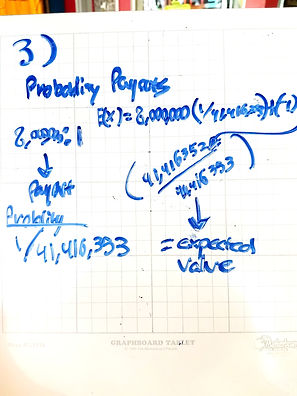 3)
Probability Payouts
E(x) = 8,000,000 (1/41,416,353) + (-1)
8,000,000: 1
Payout
Probability
1/41,416,353
(41,416352
41,416353)
= expected
value
GRAPHBOARD TABLET